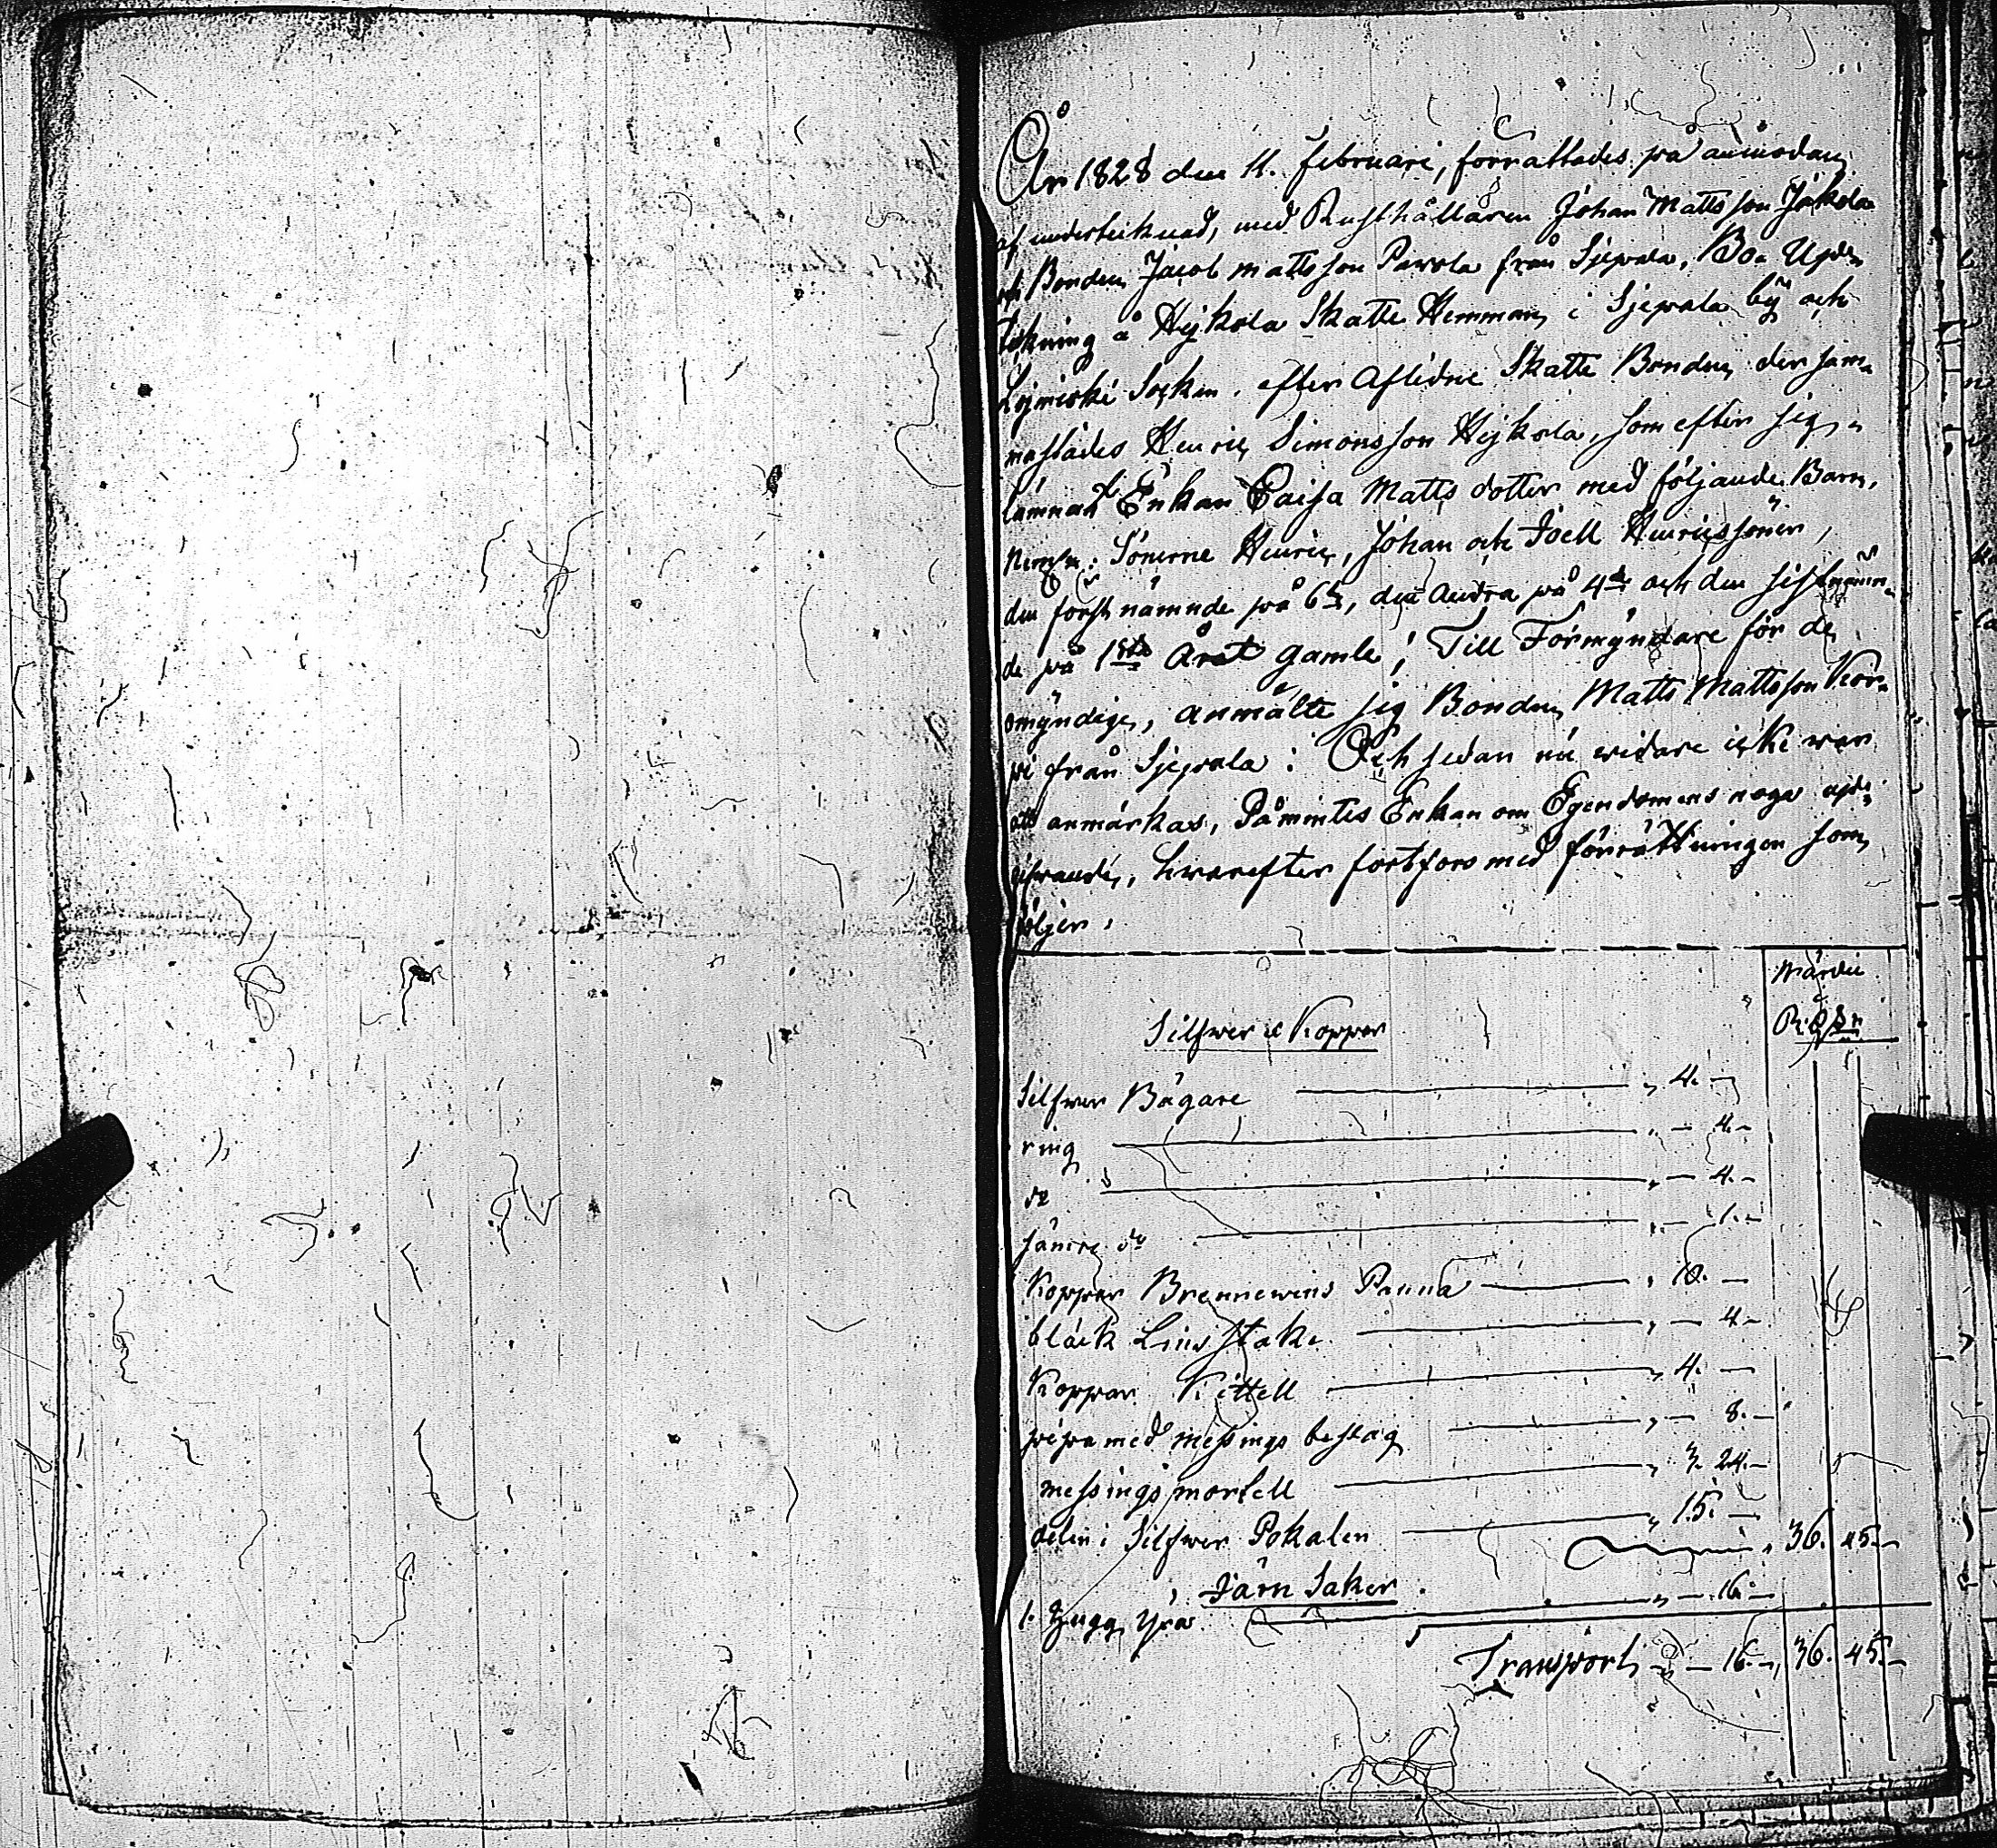 År 1828 den 11. Februari, förrättades på anmodan,
af undertecknad, med Rusthållaren Johan Mattsson Jakola
och Bonden Jacob Mattsson Pavola från Sjepala, Bo Upp-
tekning å Hejkola Skatte Hemman, i Sjepala by och
Lojnioki Socken, efter Aflidne Skatte Bonden dersam-
mastädes Henric Simonsson Hejkola, som efter sig
lämnat Enkan Caisa Matts dotter med följande Barn,
Neml: Sönerne Henric, Johan och Joell Henricssöner,
den förstnämnde på 6te, den andra på 4de och den sistnämn-
de på 1sta Året gamle; Till Förmyndare för de
omyndige, anmälte sig Bonden Matts Mattsson Kor-
pi från Sjepala: Och sedan nu widare icke war
att anmärkas, Påmintes Enkan om Egendomens noga upp-
gifwande, hwarefter fortfors med förrättningen som
följer.
Wärde
Silfwer & Koppar R:o Sr
Silfwer Bägare „ 4. –
ring „ – 4. –
do „ – 4. –
sämre do „ – 1. –
Koppar Brennewins Panna „ 10. –
bläck Liusstake „ – 4. –
Koppar Kittell „ 4. –
pipa med messings beslag „ – 8. –
messings mortell „ 3. 24. –
delen i Silfwer Pokalen „ 15. – „ 36. 45. –
Järn Saker
1. Hugg Yxa „ – 16. –
Transport „ – 16. – „ 36. 45. –